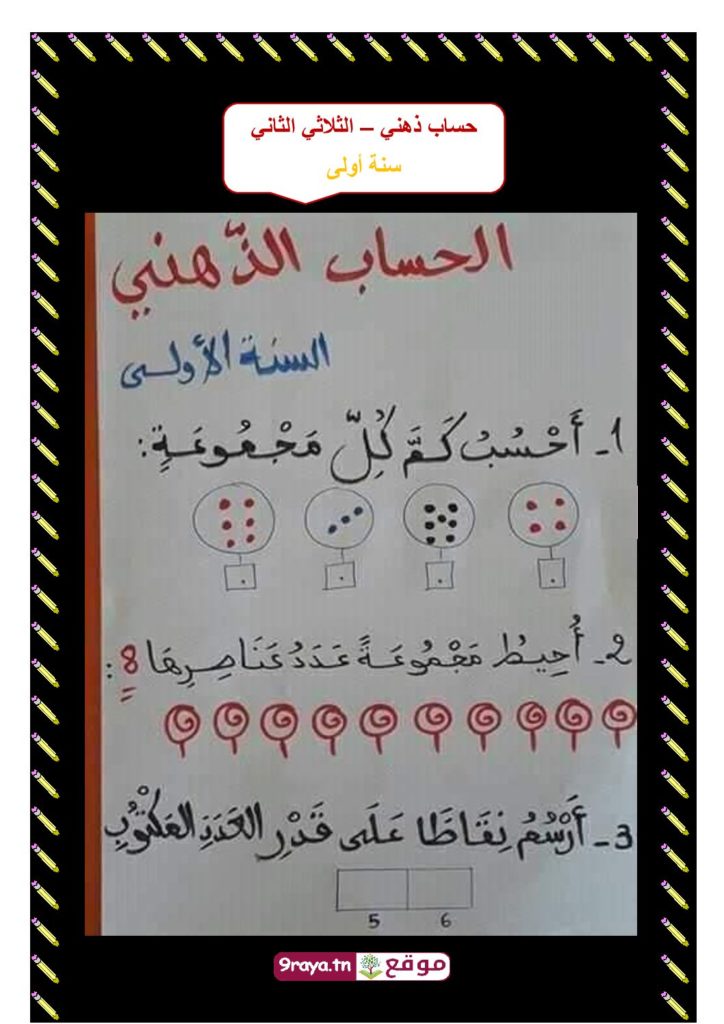 حساب ذهني – الثلاثي الثاني
سنة أولى
الحساب الذّهني
السنة الأولى
1- أَحْسُبُ كَمَّ كُلِّ مَجْمُوعَةٍ:
2- أُحِيطُ مَجْمُوعَةً عَدَدُ عَنَاصِرِهَا 8 :
3- أَرْسُمُ نِقَاطًا عَلَى قَدْرِ العَدَدِ المَكْتُوبِ
5 6
موقع 9raya.tn